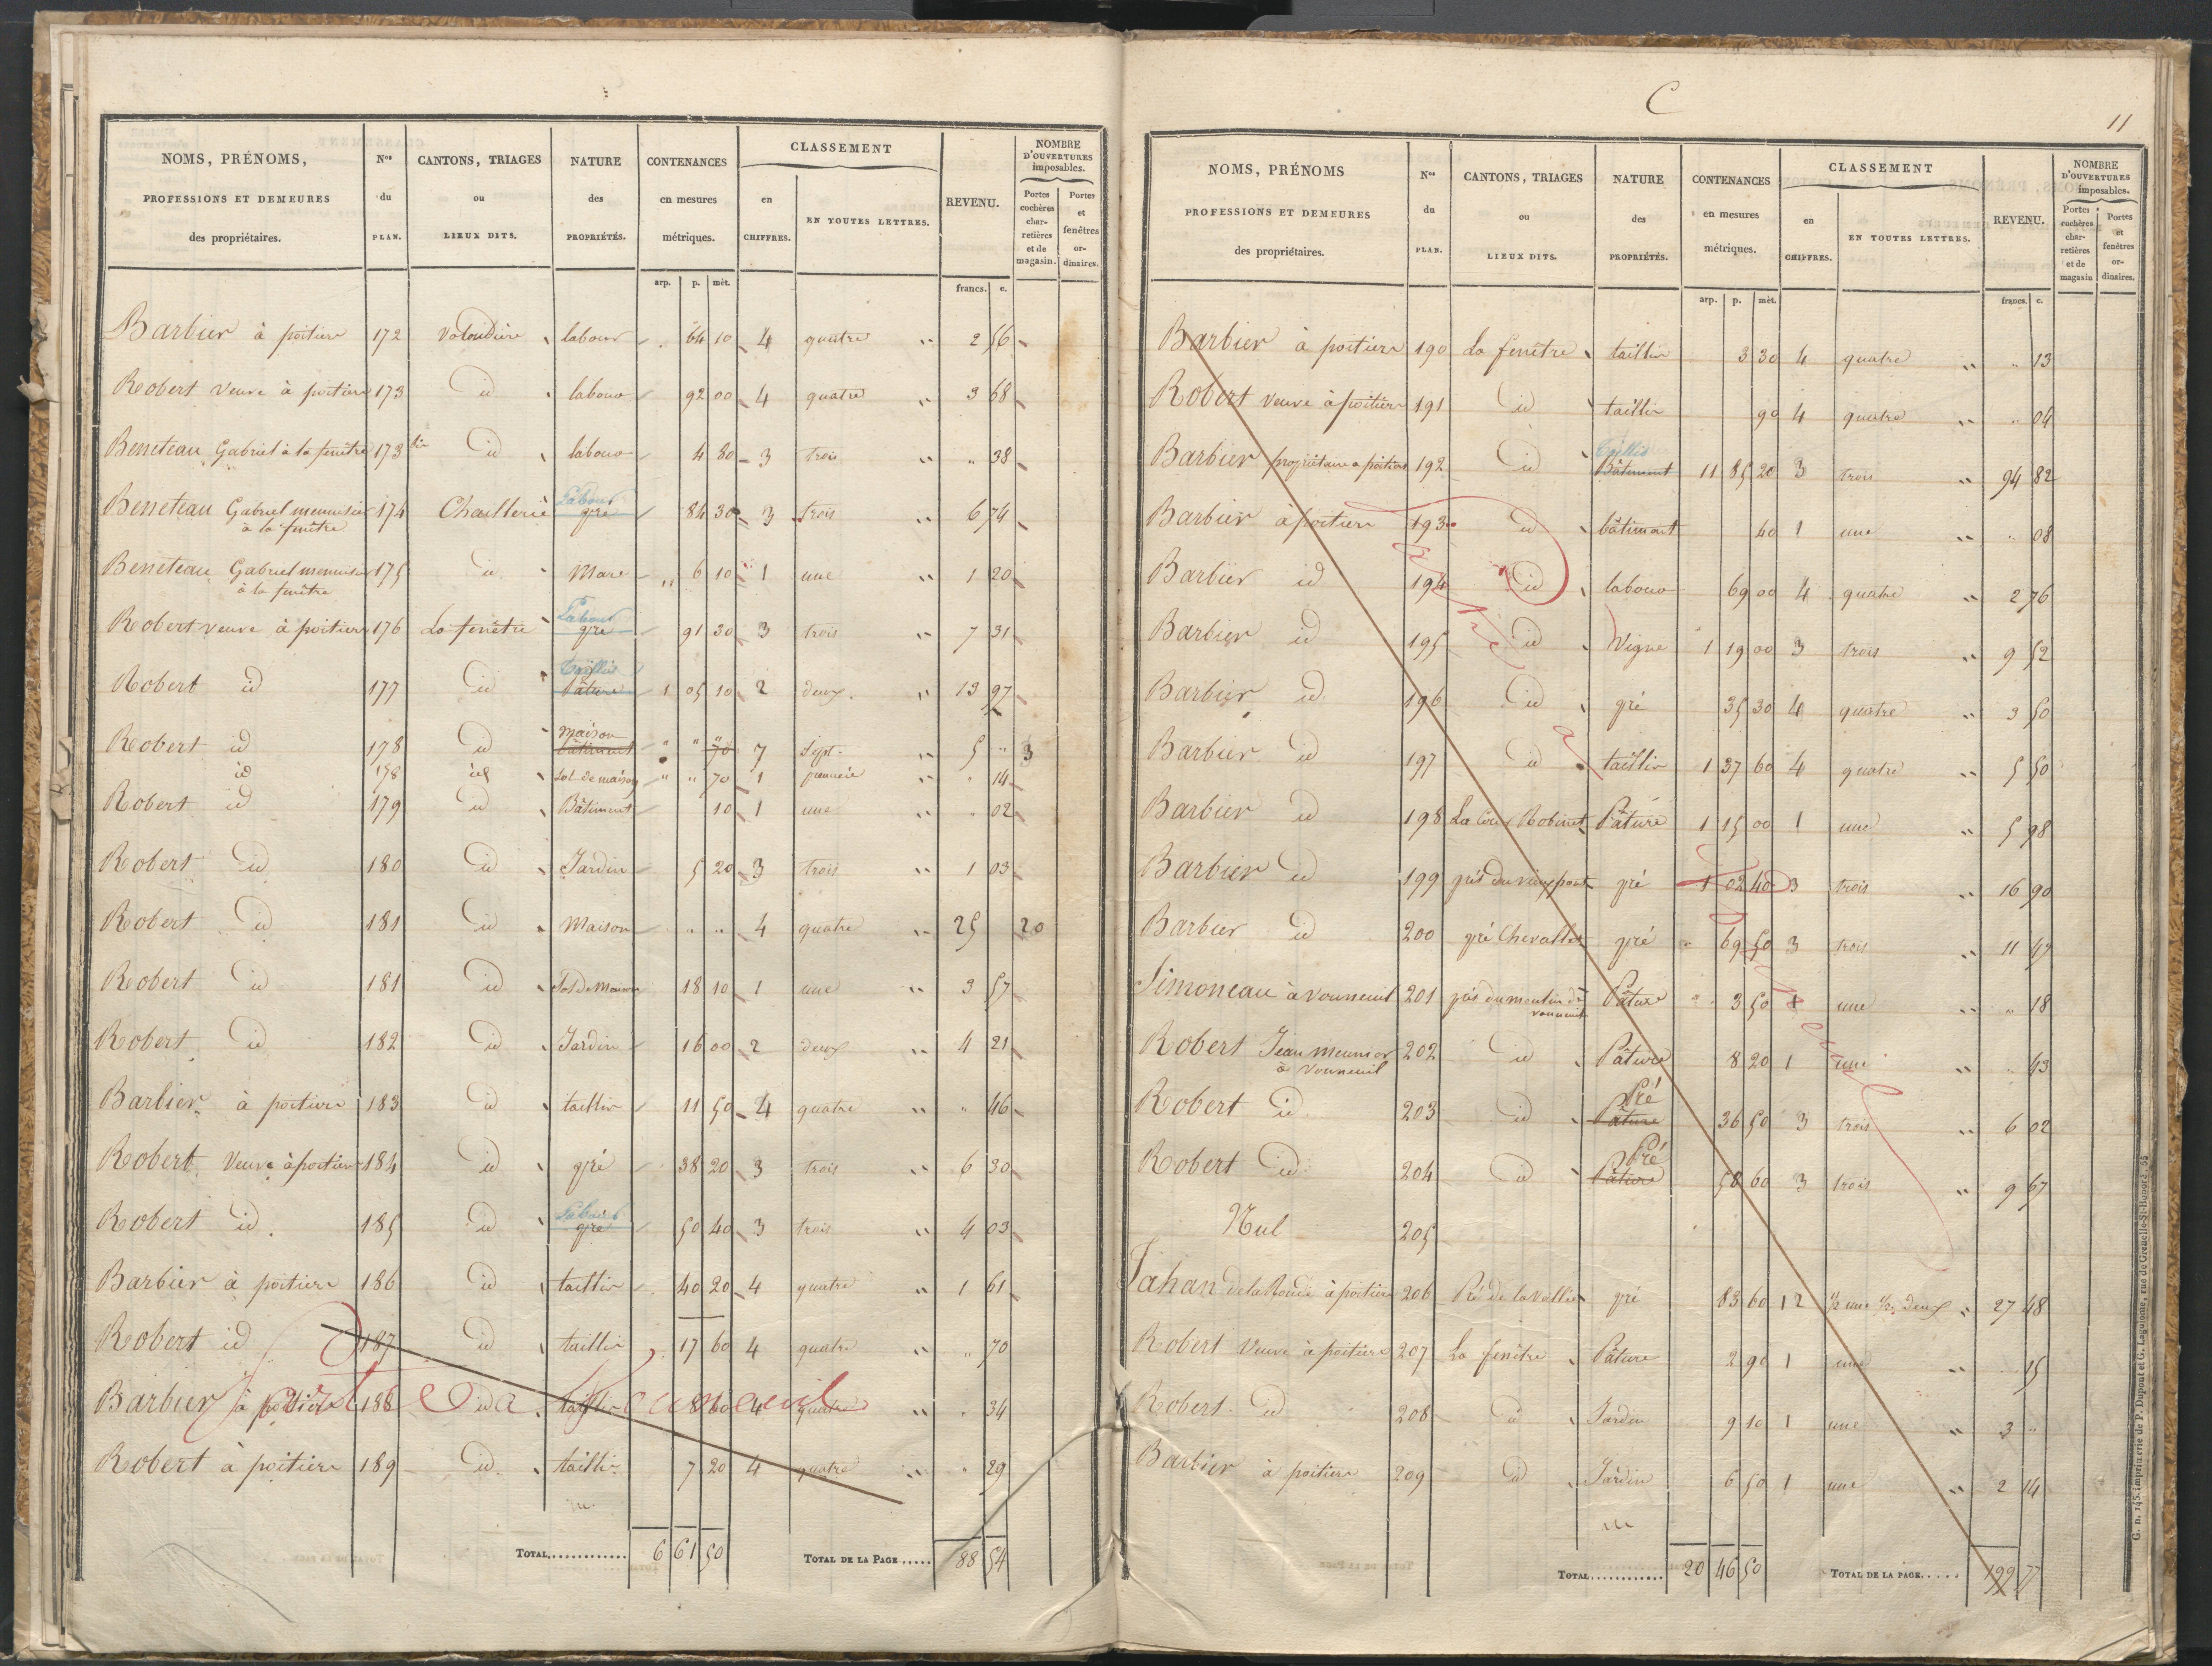 NOMS, PRÉNOMS, PROFESSIONS ET DEMEURES des propriétaires. | Nos du PLAN. | CANTONS, TRIAGES ou LIEUX DITS. | NATURE des PROPRIÉTÉS. | CONTENANCES en mesures métriques. | CLASSEMENT en CHIFFRES. | EN TOUTES LETTRES. | REVENU. | NOMBRE D'OUVERTURES imposables. Portes cochères charretières et de magasin. | Portes et fenêtres ordinaires.
arp. p. mèt. francs. c.
Barbier à poitiers 172 labour 64 10 4 quatre " 2 56
Robert veuve à poitiers 173 id labour 92 00 4 quatre " 3 68
Beneteau Gabriel à la fenêtre 173 bis id labour 4 80 3 trois " " 38
Beneteau Gabriel menuisier à la fenêtre 174 Chaillerie Labour pré 84 30 3 trois " 6 74
Beneteau Gabriel menuisier à la fenêtre 175 id Mare " 6 10 1 une " 1 20
Robert veuve à poitiers 176 La fenêtre Labour pré 91 30 3 trois " 7 31
Robert id 177 id taillis Pâture 1 05 10 2 deux " 13 97
Robert id 178 id maison bâtiment " " 70 7 sept " 5 " 3
id 178 id Sol de maison " " 70 1 première " 14
Robert id 179 id Bâtiment 10 1 une " " 02
Robert id 180 id Jardin 5 20 3 trois " 1 03
Robert id 181 id Maison " " 4 quatre " 25 20
Robert id 181 id Sol de Maison 18 10 1 une " 3 57
Robert id 182 id Jardin 16 00 2 deux " 4 21
Barbier à poitiers 183 id taillis 11 50 4 quatre " " 46
Robert Veuve à poitiers 184 id pré 38 20 3 trois " 6 30
Robert id. 185 id Labour pré 50 40 3 trois " 4 03
Barbier à poitiers 186 id taillis 40 20 4 quatre " 1 61
Robert id 187 id taillis 17 60 4 quatre " " 70
Barbier à poitiers 188 id taillis 8 60 4 quatre " " 34
Robert à poitiers 189 id. taillis 7 20 4 quatre " " 29
TOTAL............ 6 61 50 TOTAL DE LA PAGE..... 88 54
C
11
NOMS, PRÉNOMS PROFESSIONS ET DEMEURES des propriétaires. | Nos du PLAN. | CANTONS, TRIAGES ou LIEUX DITS. | NATURE des PROPRIÉTÉS. | CONTENANCES en mesures métriques. | CLASSEMENT en CHIFFRES. | EN TOUTES LETTRES. | REVENU. | NOMBRE D'OUVERTURES imposables. Portes cochères charretières et de magasin | Portes et fenêtres ordinaires.
arp. p. mèt. francs. c.
Barbier à poitiers 190 La fenêtre taillis 3 30 4 quatre " " 13
Robert veuve à poitiers 191 id taillis 90 4 quatre " " 04
Barbier propriétaire a poitiers 192 id taillis Bâtiment 11 85 20 3 trois " 94 82
Barbier à poitiers 193 id bâtiment 40 1 une " " 08
Barbier id 194 id labour 69 00 4 quatre " 2 76
Barbier id 195 id Vigne 1 19 00 3 trois " 9 52
Barbier id. 196 id pré 35 30 4 quatre " 3 50
Barbier id 197 id taillis 1 37 60 4 quatre " 5 50
Barbier id 198 Robinet Pâture 1 15 00 1 une " 5 98
Barbier id 199 prés du vieux pont pré 1 02 40 3 trois " 16 90
Barbier id 200 pré Chevallier pré " 69 50 3 trois " 11 47
Simoneau à vouneuil 201 prés du moulin de vouneuil Pâture " 3 50 1 une " " 18
Robert Jean meunier à Vouneuil 202 id Pâture 8 20 1 une " " 43
Robert id 203 id Pré Pâture 36 50 3 trois " 6 02
Robert id 204 id Pré Pâture 58 60 3 trois " 9 67
Nul 205
Jahan de la Ronde à poitiers 206 Pré de la Vallée pré 83 60 1 2 ½ une ½ deux " 27 48
Robert Veuve à poitiers 207 La fenêtre Pâture 2 90 1 une " 15
Robert id 208 id Jardin 9 10 1 une " 3 "
Barbier à poitiers 209 id Jardin 6 50 1 une " 2 14
TOTAL............ 20 46 50 TOTAL DE LA PAGE..... 199 77
porté à Vouneuil
G. n. 145. Imprimerie de P. Dupont et G. Laguionie, rue de Grenelle-St-Honoré, 55